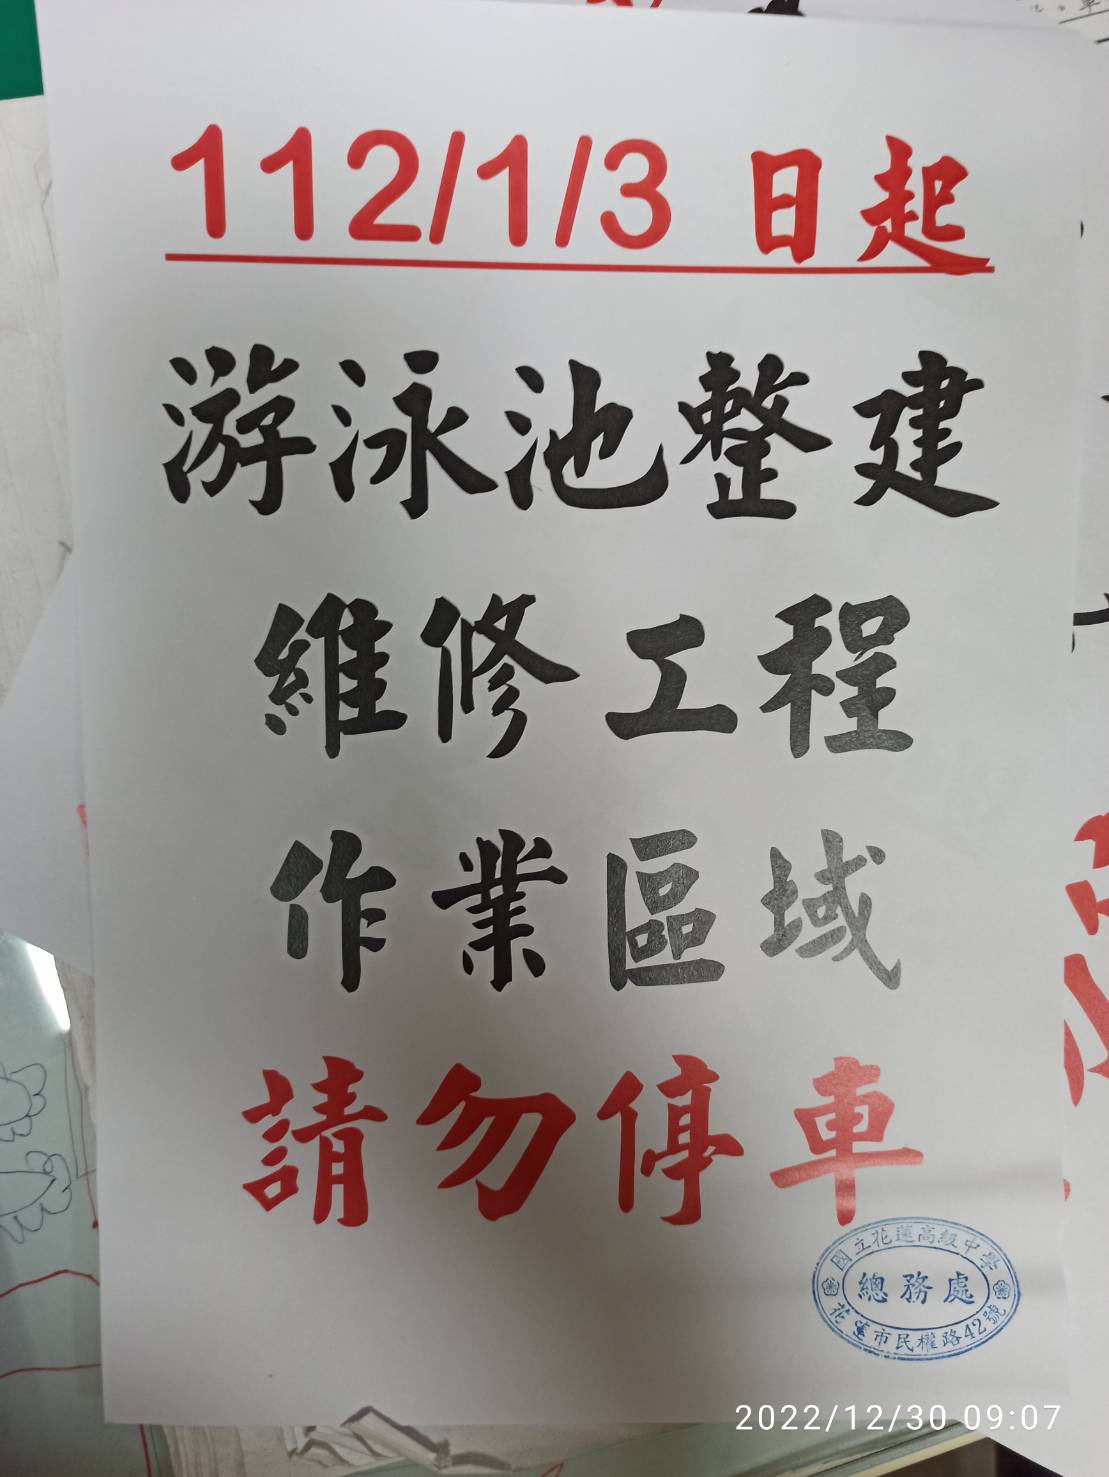 112/1/3 日起
游泳池整建
維修工程
作業區域
請勿停車
國立花蓮高級中學
總務處
花蓮市民權路42號
2022/12/30 09:07